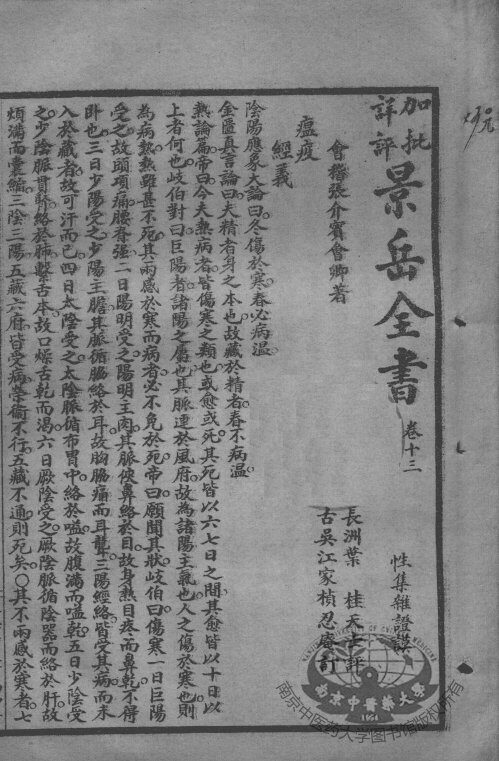 加批
詳評
景岳全書
卷十三
性集雜證謨
會稽張介賓會卿著
長洲葉　桂天士評
古吳江家楨忍庵訂
瘟疫
經義
陰陽應象大論曰冬傷於寒春必病溫
金匱真言論曰夫精者身之本也故藏於精者春不病溫
熱論篇帝曰今夫熱病者皆傷寒之類也或愈或死其死皆以六七日之間其愈皆以十日以
上者何也岐伯對曰巨陽者諸陽之屬也其脈連於風府故為諸陽主氣也人之傷於寒也則
為病熱熱雖甚不死其兩感於寒而病者必不免於死帝曰願聞其狀岐伯曰傷寒一日巨陽
受之故頭項痛腰脊強二日陽明受之陽明主肉其脈俠鼻絡於目故身熱目疼而鼻乾不得
臥也三日少陽受之少陽主膽其脈循脇絡於耳故胸脇痛而耳聾三陽經絡皆受其病而未
入於藏者故可汗而已四日太陰受之太陰脈循布胃中絡於嗌故腹滿而嗌乾五日少陰受
之少陰脈貫腎絡於肺繫舌本故口燥舌乾而渴六日厥陰受之厥陰脈循陰器而絡於肝故
煩滿而囊縮三陰三陽五藏六府皆受病榮衞不行五藏不通則死矣○其不兩感於寒者七
南京中醫藥大學
1954
南京中医药大学图书馆版权所有